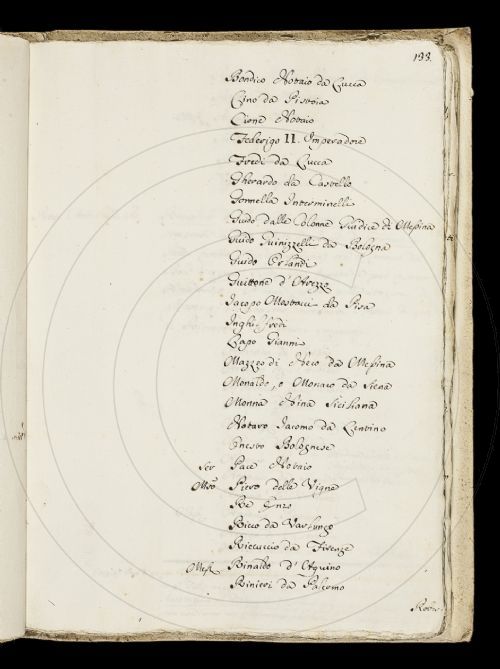 133.
Bondico Notaio da Lucca
Cino da Pistoia
Cione Notaio
Federigo II. Imperadore
Fredi da Lucca
Gherardo da Castello
Gonnella Interminelli
Guido dalle Colonne Giudice di Messina
Guido Guinizzelli da Bologna
Guido Orlandi
Guittone d'Arezzo
Iacopo Mostacci da Pisa
Inghilfredi
Lapo Gianni
Mazzeo di Rico da Messina
Monaldo, o Monaco da Siena
Monna Nina Siciliana
Notaro Iacomo da Lentino
Onesto Bolognese
Ser Pace Notaio
Piero delle Vigne
Re Enzo
Ricco da Varlungo
Ricuccio da Firenze
Rinaldo d'Aquino
Rinieri da Palermo